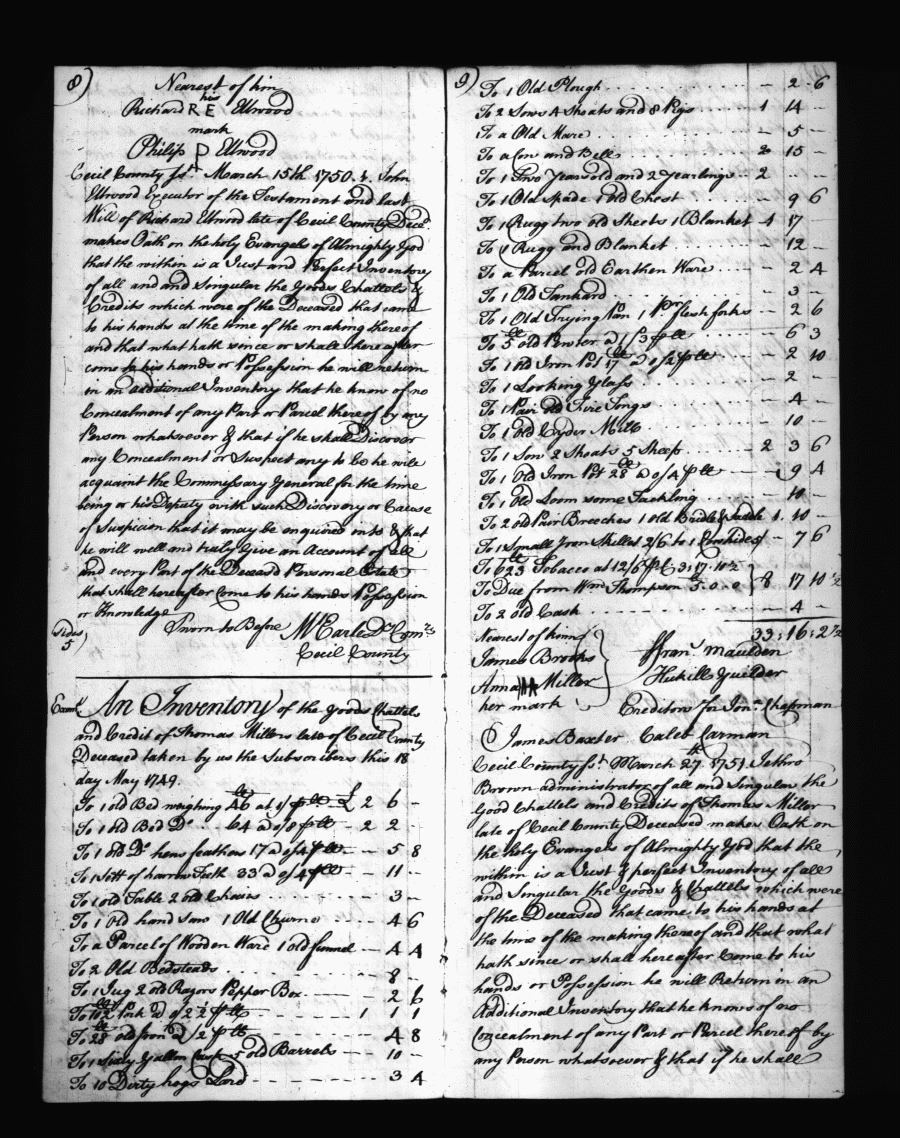 8)
Nearest of kin
his
Richard R E Ellwood
mark
Philip P Ellwood
Cecil County Ss. March 15th 1750. John
Ellwood Executor of the Testament and last
Will of Richard Ellwood late of Cecil County Decd.
makes Oath on the holy Evangels of Almighty God
that the within is a Just and Perfect Inventory
of all and and Singular the Goods Chattels &
Credits which were of the Deceased that came
to his hands at the time of the making thereof
and that what hath since or shall hereafter
come to his hands or Possession he will return
in an additional Inventory that he know of no
Concealment of any Part or Parcel thereof by any
Person whatsoever & that if he shall Discover
any Concealment or Suspect any to be he will
acquaint the Commissary General for the time
being or his Deputy with such Discovery or Cause
of Suspicion that it may be enquired into & that
he will well and truly Give an Account of all
and every Part of the Deceased Personal Estate
that shall hereafter Come to his hands Possession
or Knowledge
Sides
5)
Sworn to Before M Earle Dy Comrs
Cecil County
Examd.
An Inventory of the Goods Chattels
and Credit of Thomas Millers late of Cecil County
Deceased taken by us the Subscribers this 18
day May 1749.
To 1 old Bed weighing 46 lb at 1/ p lb £ 2 6 -
To 1 old Bed Do. 64 a 0/8 p lb - 2 2 -
To 1 old Do. hens feathers 17 a 0/4 p lb - 5 8
To 1 Sett of harrow Teeth 33 a 0/4 p lb - 11 -
To 1 old Table 2 old Chairs - 3 -
To 1 Old hand saw 1 Old Churne - 4 6
To a Parcel of Wooden Ware 1 old funnel - 4 4
To 2 Old Bedsteads - 8 -
To 1 Jug 2 old Razors Pepper Box - 2 6
To 102 lb Pork a 0/2 1/2 p lb - 1 1 1
To 28 lb old Iron a /2 p lb - 4 8
To 1 Sixty Gallon Cask 5 old Barrels - 10 -
To 10 Dirty hogs Lard - 3 4
9)
To 1 Old Plough - 2 6
To 2 Sows 4 Shoats and 8 Pigs 1 14 -
To a Old Mare - 5 -
To a Cow and Bell 2 15 -
To 1 Two Years old and 2 Yearlings 2 - -
To 1 Old Spade 1 old Chest - 9 6
To 1 Rugg two old Sheets 1 Blanket 4 17 -
To 1 Rugg and Blanket - 12 -
To a Parcel old Earthen Ware - 2 4
To 1 Old Tankard - 3 -
To 1 Old Frying Pan 1 Pr flesh forks - 2 6
To 5 lb old Pewter a 1/3 p lb - 6 3
To 1 Old Iron Pot 17 lb a 0/2 p lb - 2 10
To 1 Looking Glass - 2 -
To 1 Pair old Fire Tongs - 4 -
To 1 Old Cyder Mill - 10 -
To 1 Sow 2 Shoats 5 Sheep 2 3 6
To 1 Old Iron Pot 28 lb a 0/4 p lb - 9 4
To 1 Old Loom some Tackling - 10 -
To 2 old Pair Breeches 1 old Bridle & Saddle 1. 10 -
To 1 Small Iron Skillet 2/6 to 1 Cowhide 5/ - 7 6
To 623 lb Tobacco at 12/6 p Ct 3:17:10 1/2
To Due from Wm. Thompson 5.0.0 } 8 17 10 1/2
To 2 old Cask - 4 -
33:16:2 1/2
Nearest of kinn
James Brooks
Anna Miller
her mark
Fran. Maulden
Hukill Guilder
Creditors for Jona. Chapman
James Baxter Caleb Carman
Cecil County Ss. March 27th 1751. Jethro
Brown administrator of all and Singular the
Good Chattels and Credits of Thomas Miller
late of Cecil County Deceased makes Oath on
the holy Evangels of Almighty God that the
within is a Just & perfect Inventory of all
and Singular the Goods & Chattels which were
of the Deceased that came to his hands at
the time of the making thereof and that what
hath since or shall hereafter Come to his
hands or Possession he will Return in an
Additional Inventory that he knows of no
Concealment of any Part or Parcel thereof by
any Person whatsoever & that if he shall